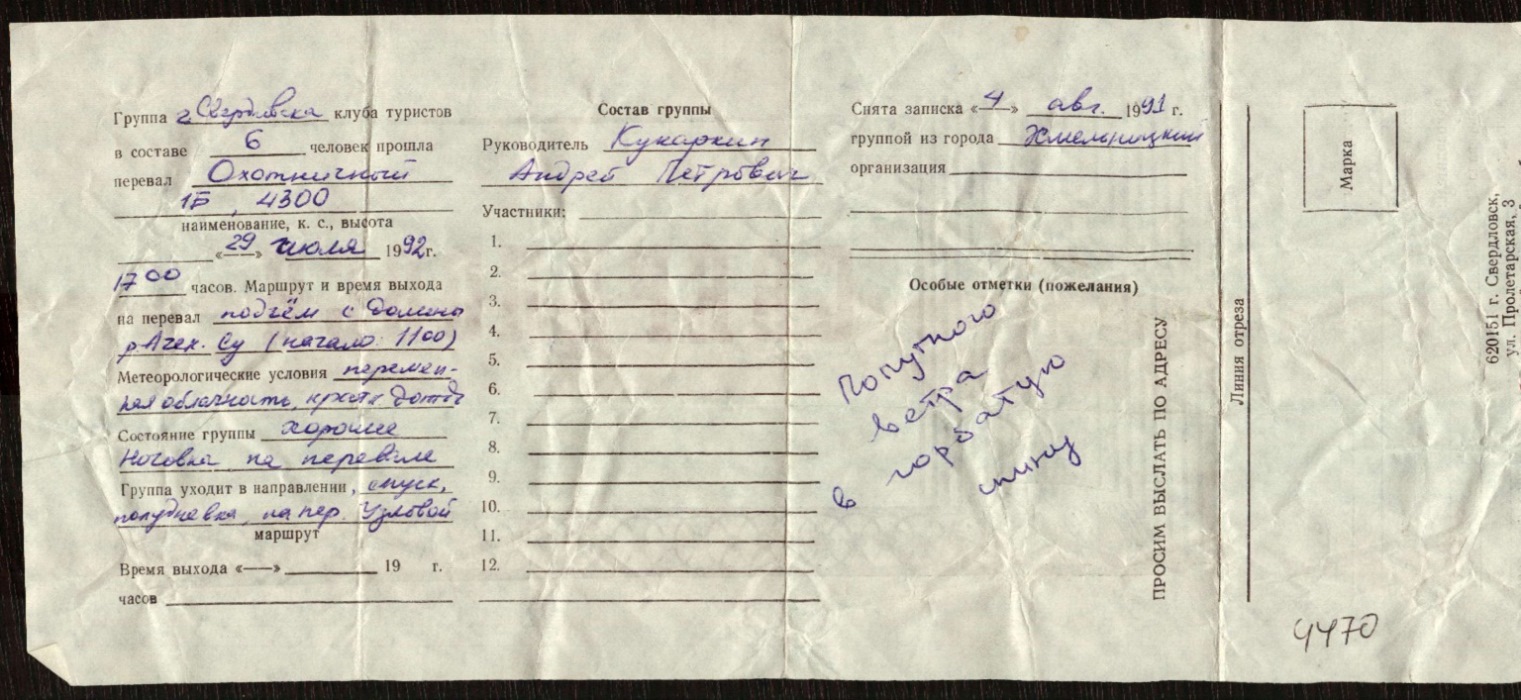 Группа г. Свердловска клуба туристов
в составе 6 человек прошла
перевал Охотничный
1Б, 4300
наименование, к. с., высота
«29» июля 1992 г.
17 00 часов. Маршрут и время выхода
на перевал подъём с долины
р. Су (начало 1100)
Метеорологические условия перемен-
ная облачность,
Состояние группы хорошее
Ночовка на перевале
Группа уходит в направлении, спуск,
полудневка, на пер. Узловой
маршрут
Время выхода «—» 19 г.
часов
Состав группы
Руководитель Кукаркин
Андрей Петрович
Участники:
1.
2.
3.
4.
5.
6.
7.
8.
9.
10.
11.
12.
Снята записка «4» авг. 1991 г.
группой из города Хмельницкий
организация
Особые отметки (пожелания)
Попутного
ветра
в горбатую
спину
ПРОСИМ ВЫСЛАТЬ ПО АДРЕСУ
Линия отреза
Марка
620151 г. Свердловск,
ул. Пролетарская, 3
4470